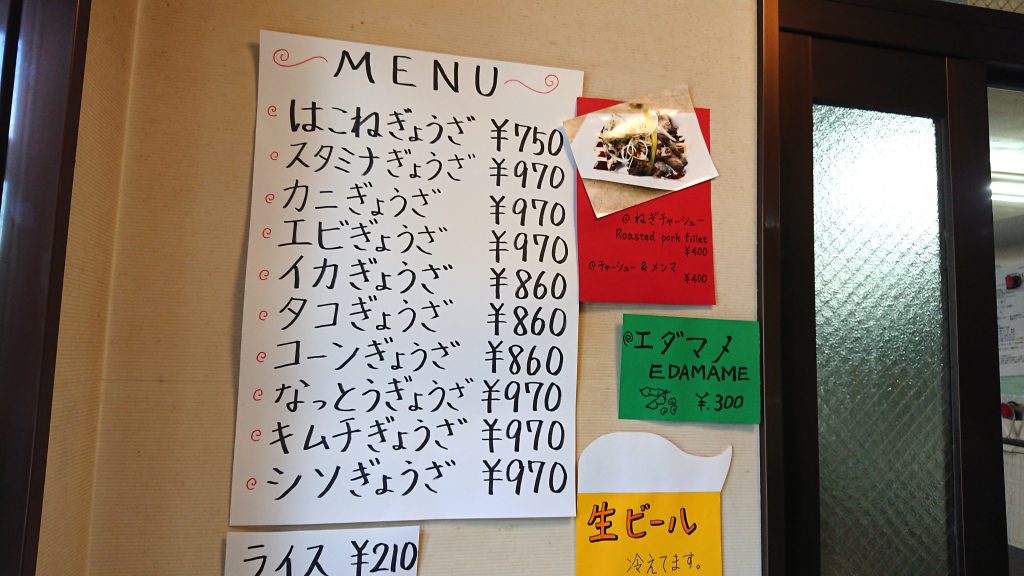 MENU
はこねぎょうざ ¥750
スタミナぎょうざ ¥970
カニぎょうざ ¥970
エビぎょうざ ¥970
イカぎょうざ ¥860
タコぎょうざ ¥860
コーンぎょうざ ¥860
なっとうぎょうざ ¥970
キムチぎょうざ ¥970
シソぎょうざ ¥970
ライス ¥210
ねぎチャーシュー
Roasted pork fillet
¥400
チャーシュー & メンマ
¥400
エダマメ
EDAMAME
¥.300
生ビール
冷えてます。